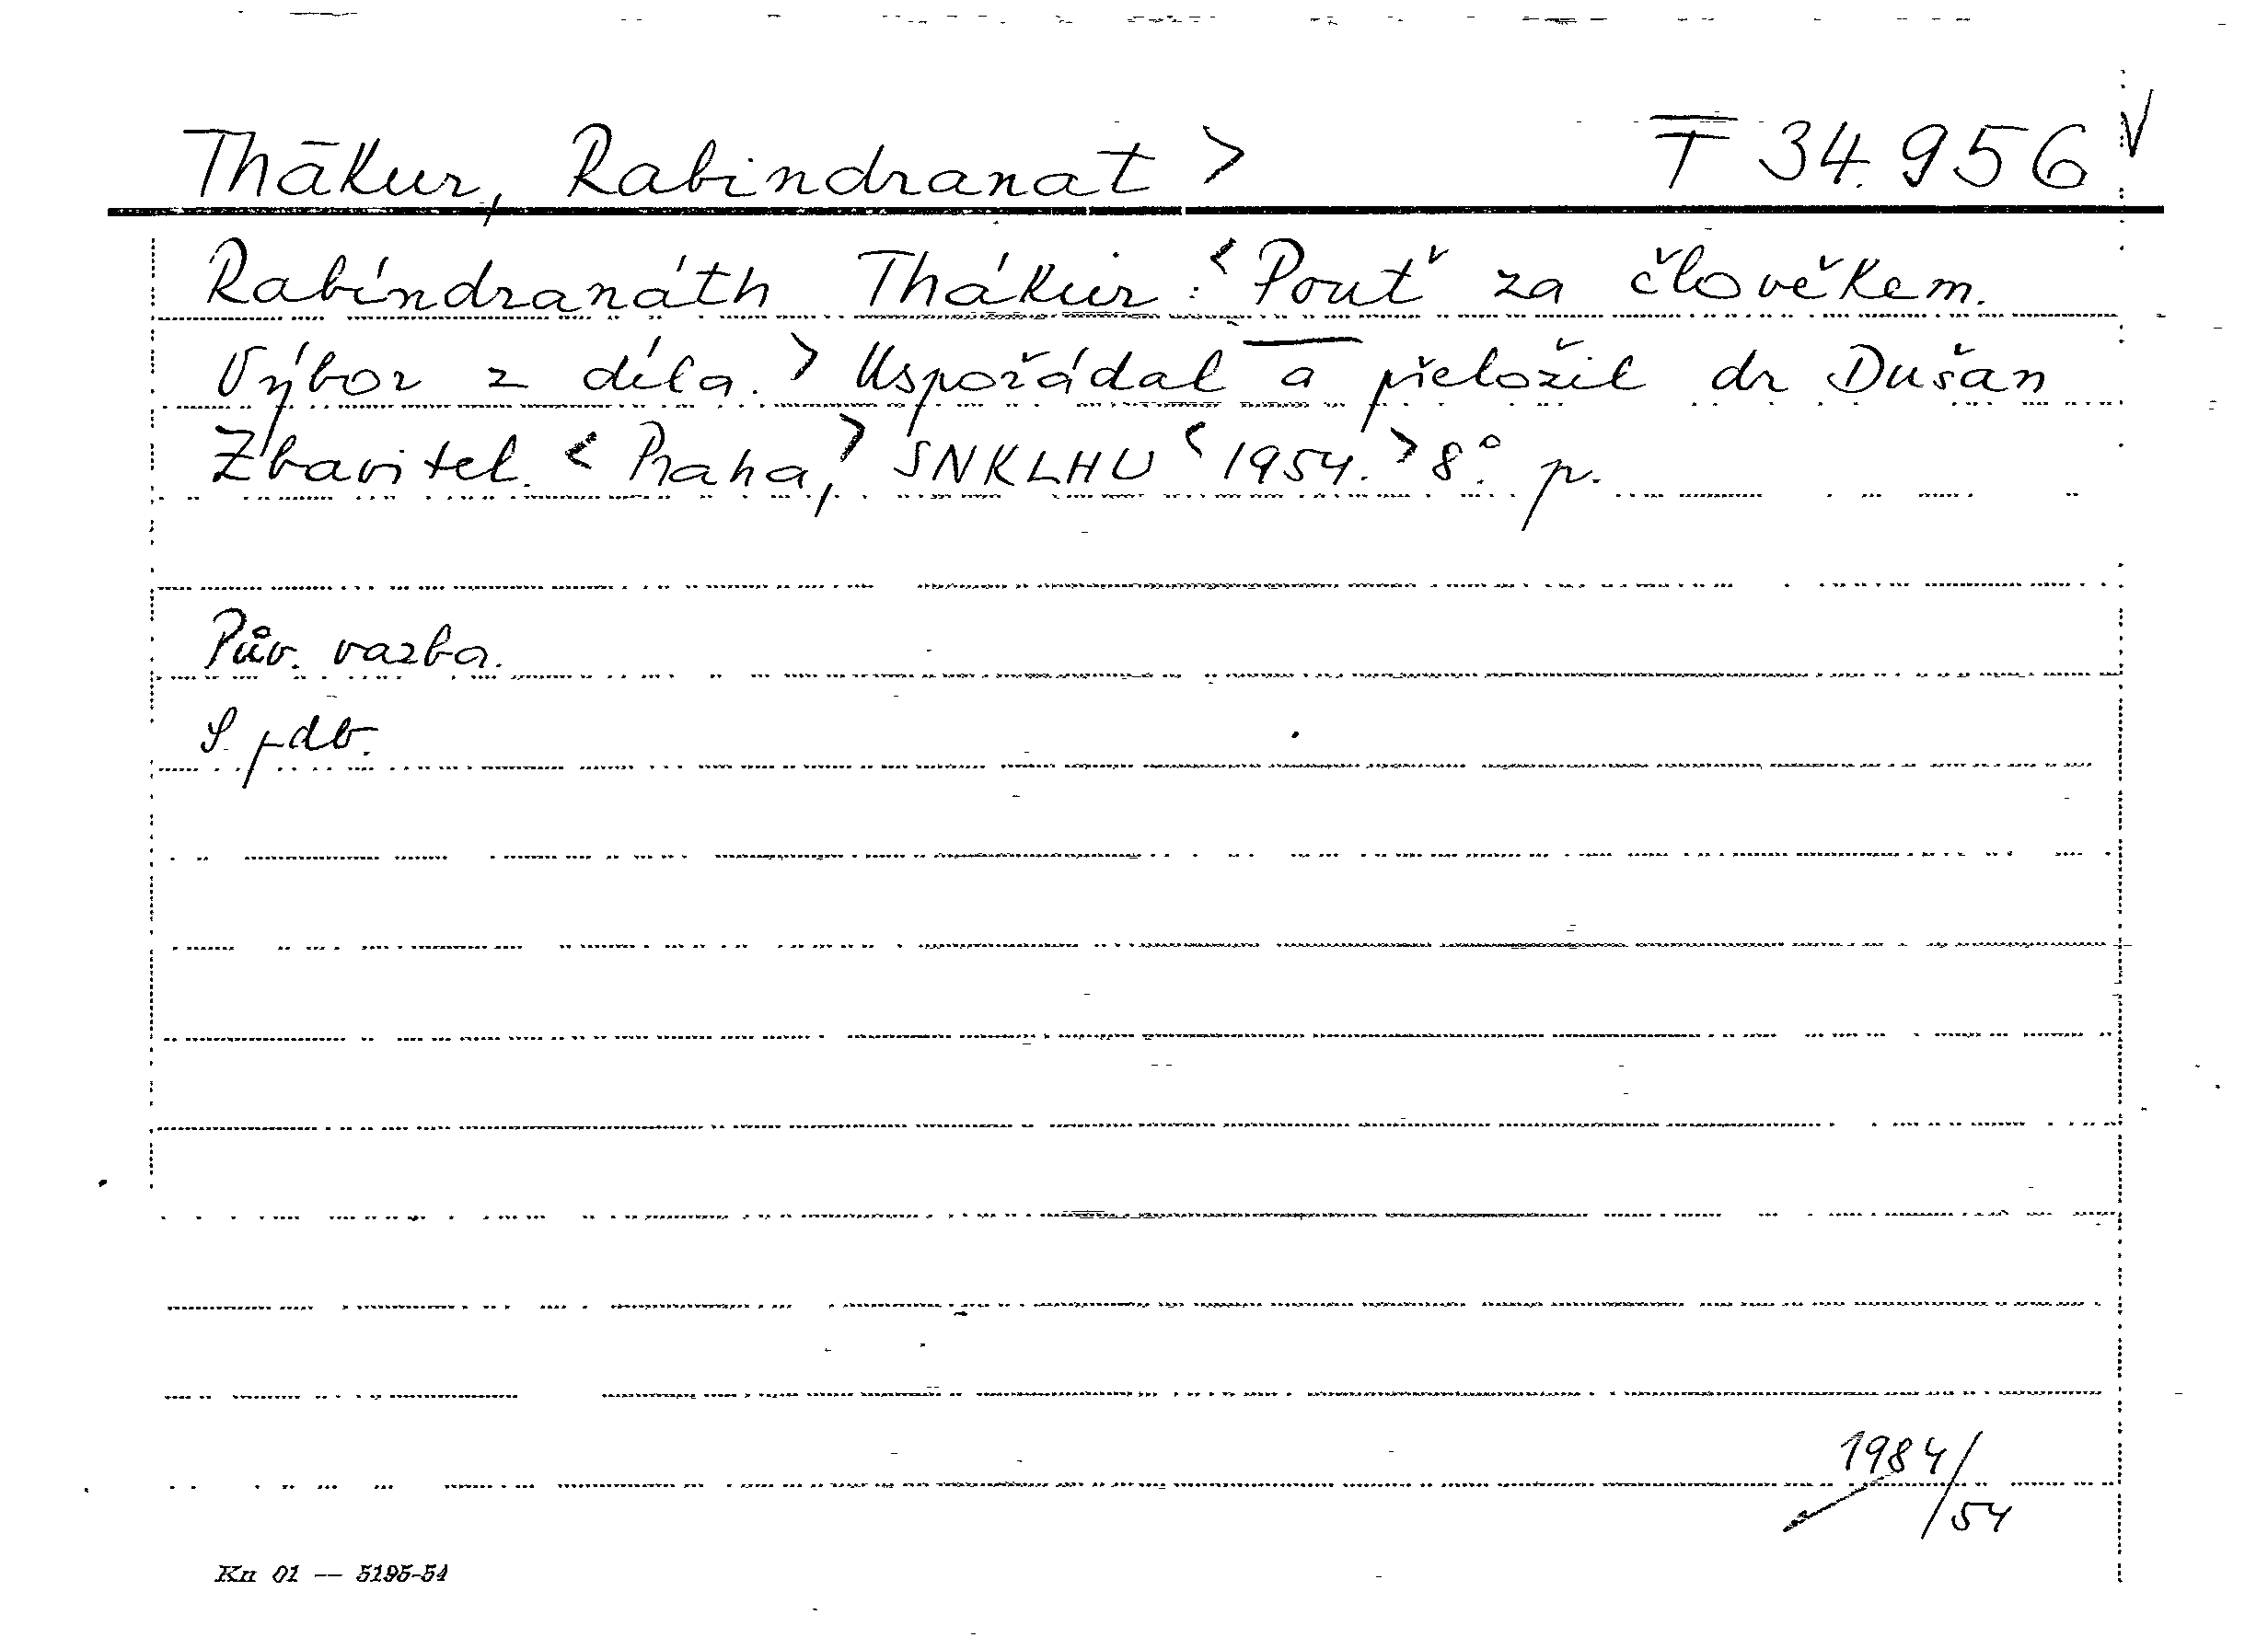 Thākur, Rabindranat > T 34.956 V
Rabíndranáth Thákur: <Pouť za člověkem.
Výbor z díla.> Uspořádal a přeložil dr Dušan
Zbavitel. <Praha,> SNKLHU <1954.> 8°. p.
Pův. vazba.
S pdb.
1984/
/54
Kn 01 — 5195-54